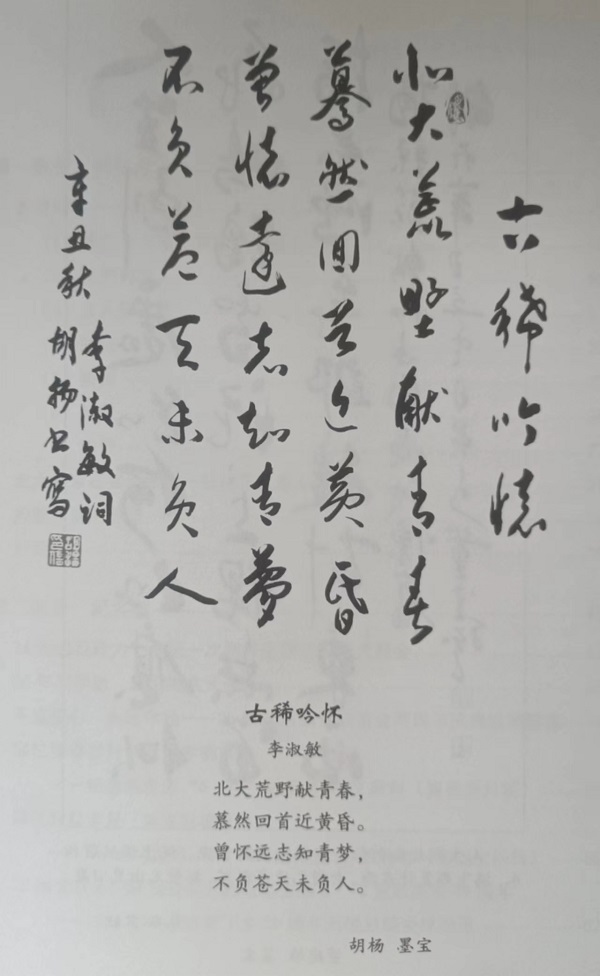 古稀吟懷
北大荒野献青春
驀然回首近黄昏
曾懷遠志知青夢
不负苍天未负人
辛丑秋
李淑敏词
胡扬书寫
古稀吟怀
李淑敏
北大荒野献青春，
慕然回首近黄昏。
曾怀远志知青梦，
不负苍天未负人。
胡杨 墨宝